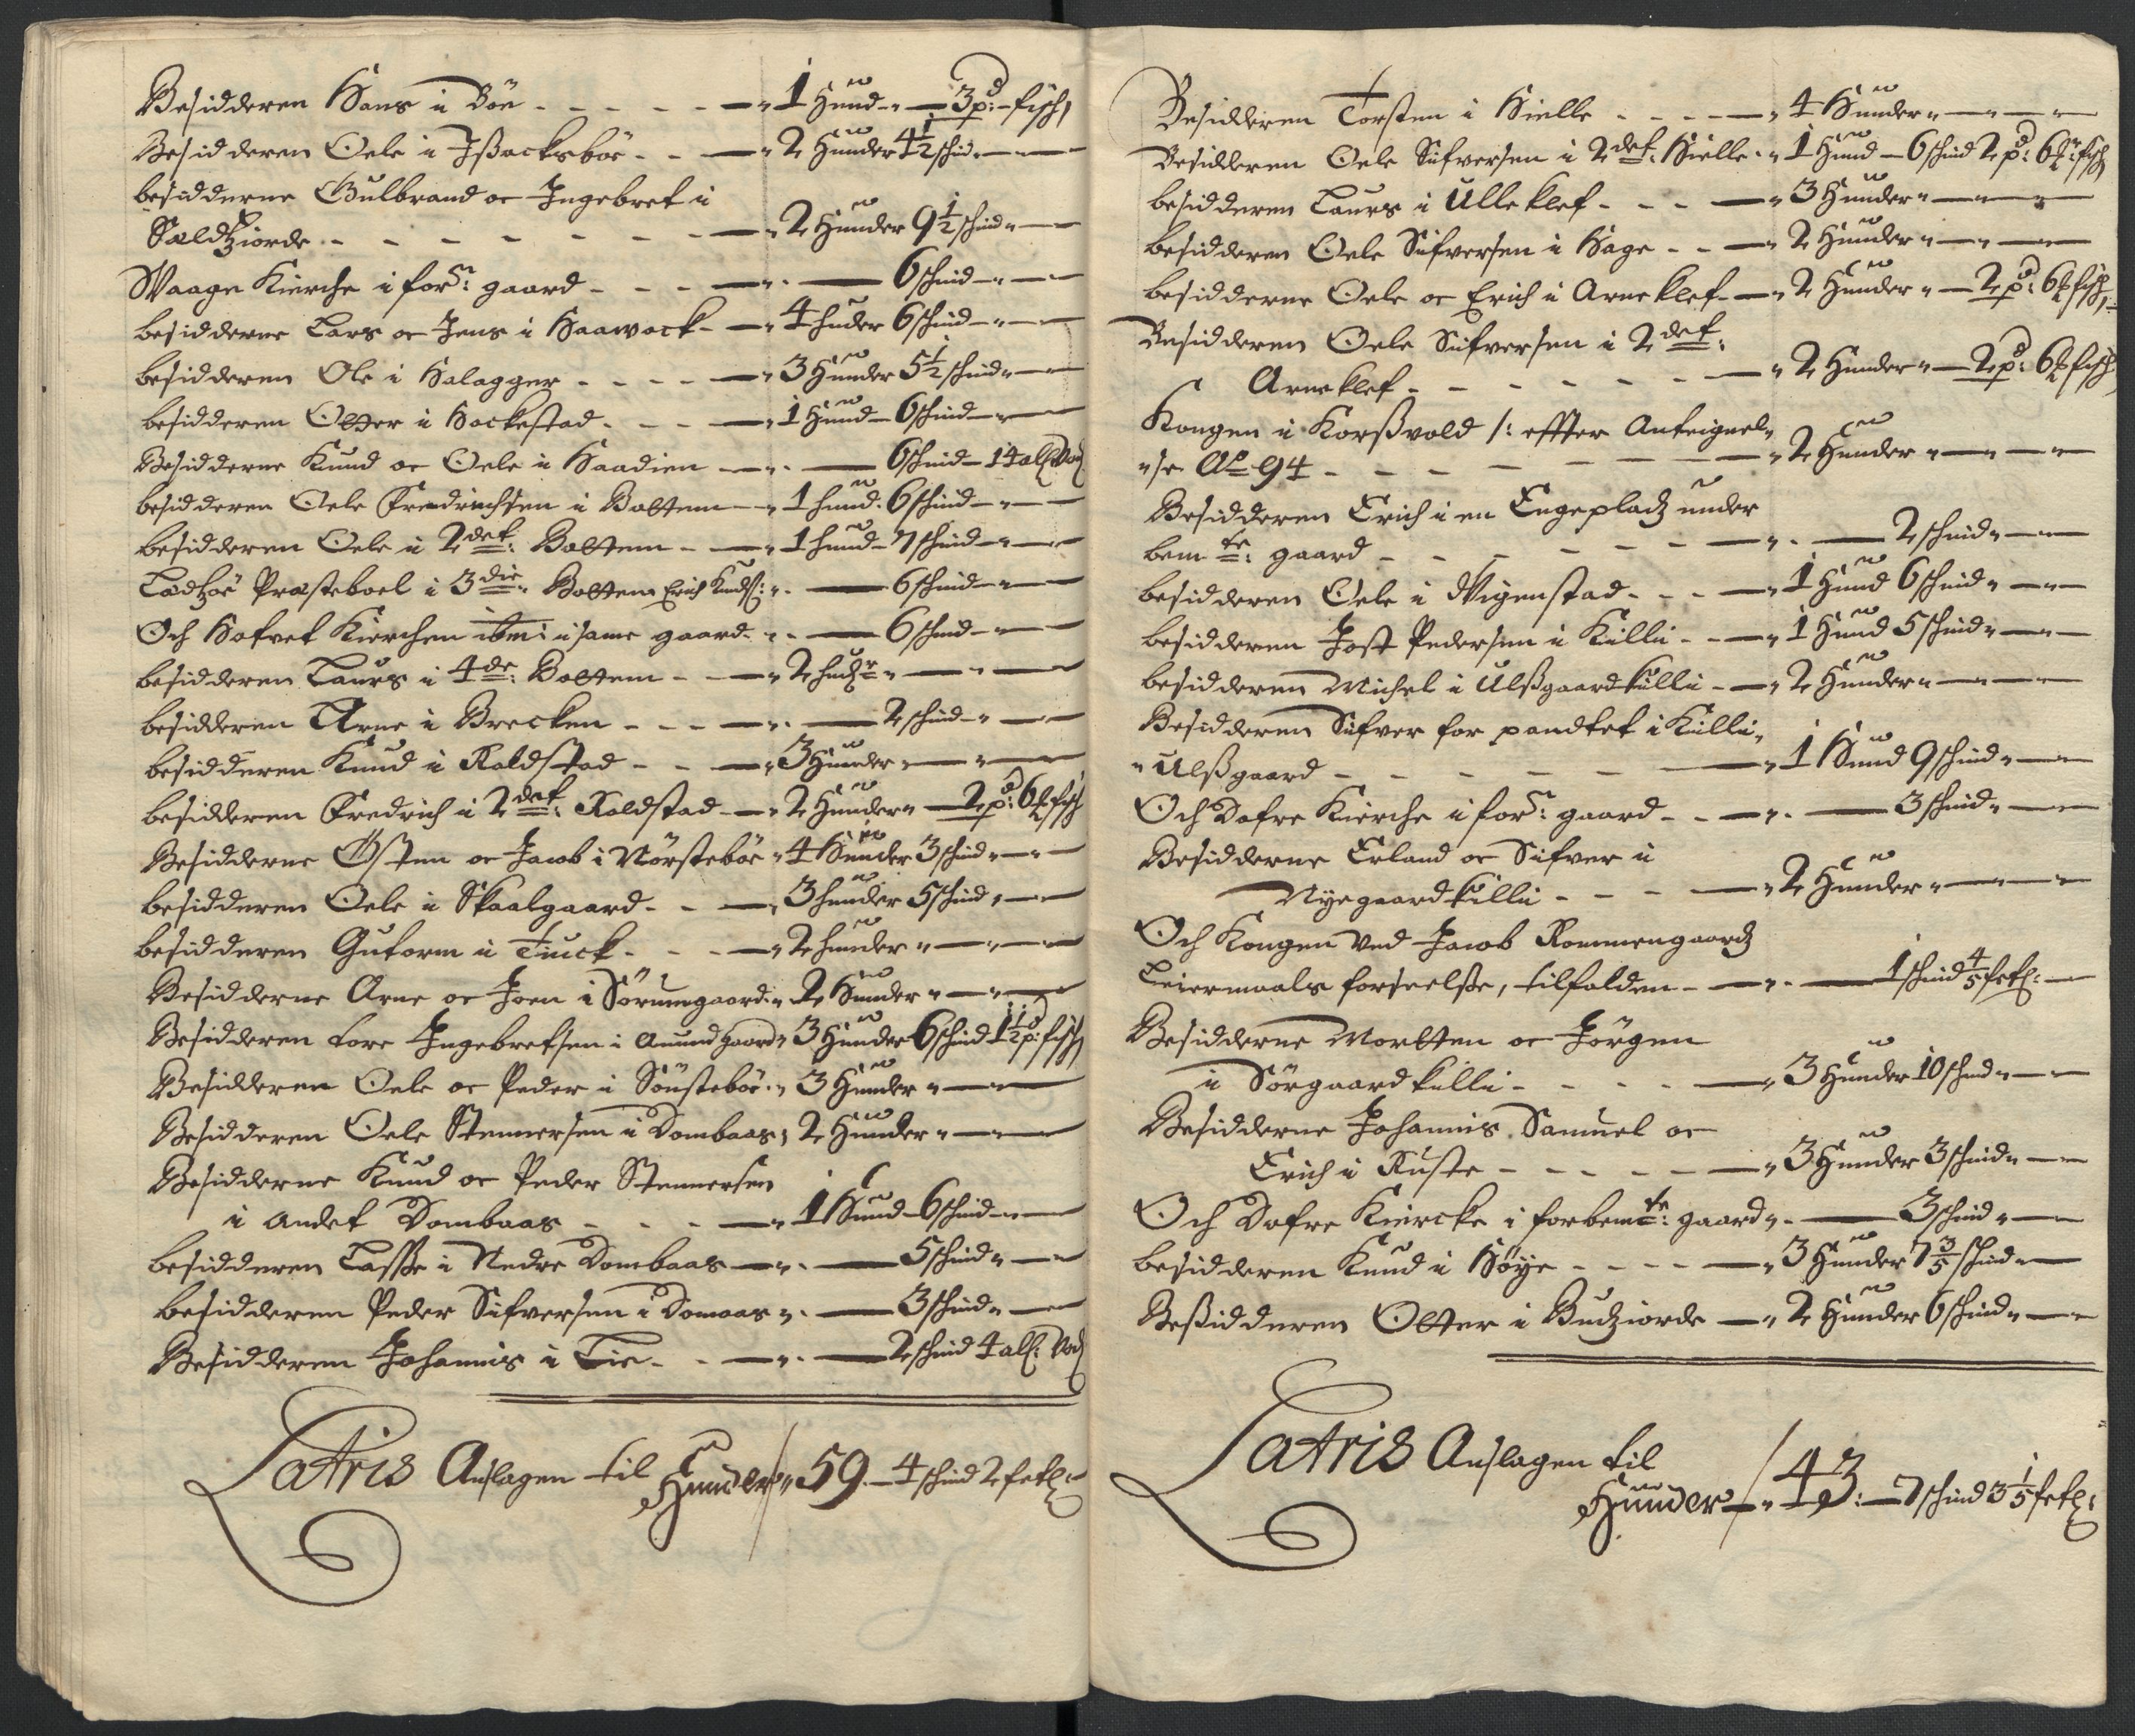 Besidderen Hans i Böe - - - - - " 1 Hund " — 3 pd: fisch
Besidderen Oele i Jßacksböe - - " 2 Hunder 4½ schid " —
besidderne Gulbrand oc Ingebret i
Sældtziorde - - - - - - " 2 Hunder 9½ schind " —
Waage Kierche i forn: gaard - - - " - — 6 schind - " —
besidderne Lars oc Jens i Haawock - " 4 huder 6 schind - " —
besidderen Ole i Halagger - - - - " 3 Hunder 5½ schind " —
besidderen Otter i Hockestad - - - " 1 Hund - 6 schind - " —
Besidderne Knud oc Oele i Haadien - " - — 6 schind - 14 all:
besidderen Oele Fredrichsen i Bottem - " 1 hund - 6 schind - " —
besidderen Oele i 2det: Bottem - - " 1 hund - 7 schind - " —
Lædtzöe Præsteboel i 3die: Bottem Erich Knuds: " - — 6 schind - " —
Och Hofvet Kierchen ibm: i same gaard - " - — 6 schind - " —
besidderen Laurs i 4de: Bottem - - " 2 hudr " — " —
besidderen Arne i Brecken - - - " - — 2 schind - " —
besidderen Knud i Roldstad - - " 3 Hunder " — " —
besidderen Fredrich i 2det: Roldstad - " 2 Hunder " — 2 pd: 6 fisch
Besidderne Östen oc Jacob i Nörsteböe " 4 Hunder 3 schind " — " —
besidderen Oele i Skaalgaard - - " 3 hunder 5 schind " —
besidderen Gutorm i Tiuck - - - " 2 hunder " — " —
Besidderne Arne oc Joen i Sörumgaard " 2 Hunder " — " —
Besidderen tore Ingebretsen i Amundgaard " 3 Hunder 6 schind 1½ pd: fisch
Besidderen Oele oc Peder i Söusteböe " 3 Hunder " —
Besidderen Oele Stennersen i Dombaas " 2 Hunder " —
Besidderne Knud oc Peder Stennersen
i andet Dombaas - - - " 1 Hund - 6 schind - " —
besidderen Lasße i Nedre Dombaas - " - — 5 schind " —
besidderen Peder Sifversen i Domaas " - — 3 schind " —
Besidderen Johannis i Lie - - " - — 2 schind 4 all:
Latris Anslagen til Hunder " 59 - 4 schind 2 fetl:
Besidderen Torsten i Hielle - - - - " 4 Hunder " — " —
Besidderen Oele Sifversen i 2det: Hielle " 1 Hund - 6 schind 2 pd: 6 fisch
besidderen Laurs i Ulleklef - - - " 3 Hunder " — " —
besidderen Oele Sifversen i Hage - - " 2 Hunder " — " —
besidderne Oele oc Erich i Arneklef - " 2 Hunder " — 2 pd: 6 fisch
Besidderen Oele Sifversen i 2det:
Arneklef - - - - - " 2 Hunder " — 2 pd: 6 fisch
Kongen i Korßvold /: effter Anteignel"
"se Ao 94 - - - - - - " 2 Hunder " — " —
Besidderen Erich i en Engepladz under
bemte: gaard - - - - - - " - — 2 schind " —
besidderen Oele i Wigenstad - - - " 1 Hund 6 schind " —
besidderen Jost Pedersen i Killi - - " 1 Hund 5 schind " —
besidderen Michel i Ulßgaardkilli - " 2 Hunder " —
Besidderen Sifver for pandtet i Killi"
"Ulßgaard - - - - - " 1 Hund 9 schind " —
Och Dofre Kierche i forn: gaard - - " - — 3 schind " —
Besidderne Erland oc Sifver i
Nyegaardkilli - - - " 2 Hunder " —
Och Kongen ved Jacob Rommengaards
Leiermaals forseelße, tilfalden - " - — 1 schind 4/5 fetl: —
Besidderne Mortten oc Jörgen
i Sörgaardkilli - - - - " 3 Hunder 10 schind " —
Besidderne Johannis, Samuel oc
Erich i Ruste - - - - - " 3 Hunder 3 schind " —
Och Dofre Kiercke i forbemte: gaard " - — 3 schind " —
besidderen Knud i Höye - - - - " 3 Hunder 7 3/5 schind —
Beßidderen Otter i Budziorde - " 2 Hunder 6 schind " —
Latris Anslagen til
Hunder " 43: — 7 schind 3 1/5 fetl: